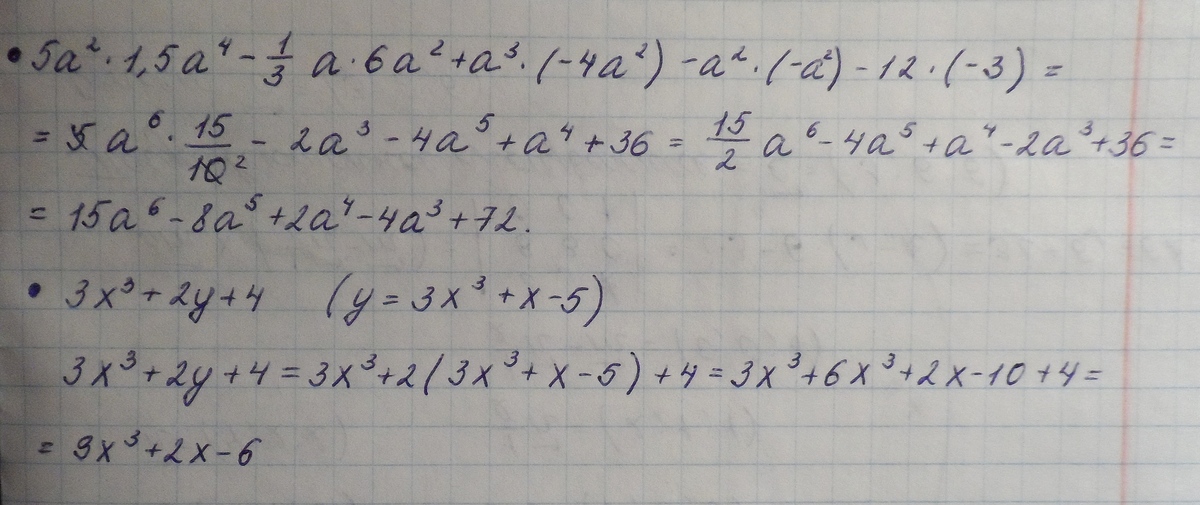 • 5a²·1,5a⁴ - 1/3 a·6a² + a³·(-4a²) - a²·(-a²) - 12·(-3) =
= 5a⁶·15/10² - 2a³ - 4a⁵ + a⁴ + 36 = 15/2 a⁶ - 4a⁵ + a⁴ - 2a³ + 36 =
= 15a⁶ - 8a⁵ + 2a⁴ - 4a³ + 72.
• 3x³ + 2y + 4 (y = 3x³ + x - 5)
3x³ + 2y + 4 = 3x³ + 2(3x³ + x - 5) + 4 = 3x³ + 6x³ + 2x - 10 + 4 =
= 9x³ + 2x - 6